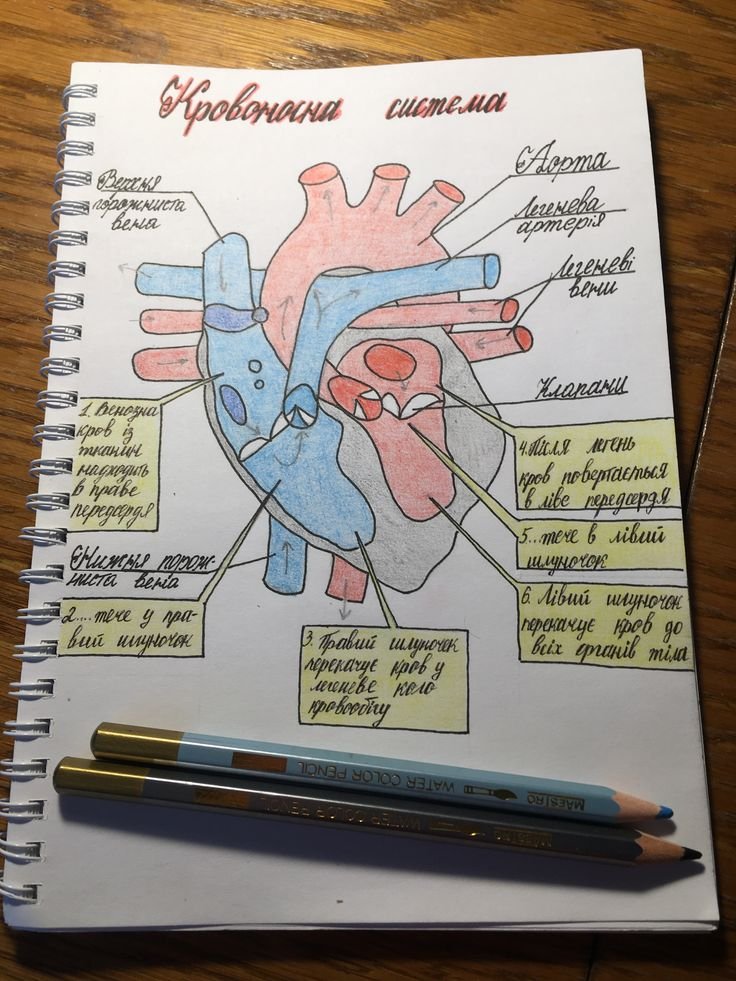 Кровоносна система
Верхня
порожниста
вена
Аорта
Легенева
артерія
Легеневі
вени
Клапани
1. Венозна
кров із
тканин
надходить
в праве
передсердя
Нижня порож-
ниста вена
2....тече у пра-
вий шлуночок
3. Правий шлуночок
перекачує кров у
легеневе коло
кровообігу
4. Після легень
кров повертається
в ліве передсердя
5...тече в лівий
шлуночок
6. Лівий шлуночок
перекачує кров до
всіх органів тіла
MAESTRO WATER COLOR PENCIL
MAESTRO WATER COLOR PENCIL